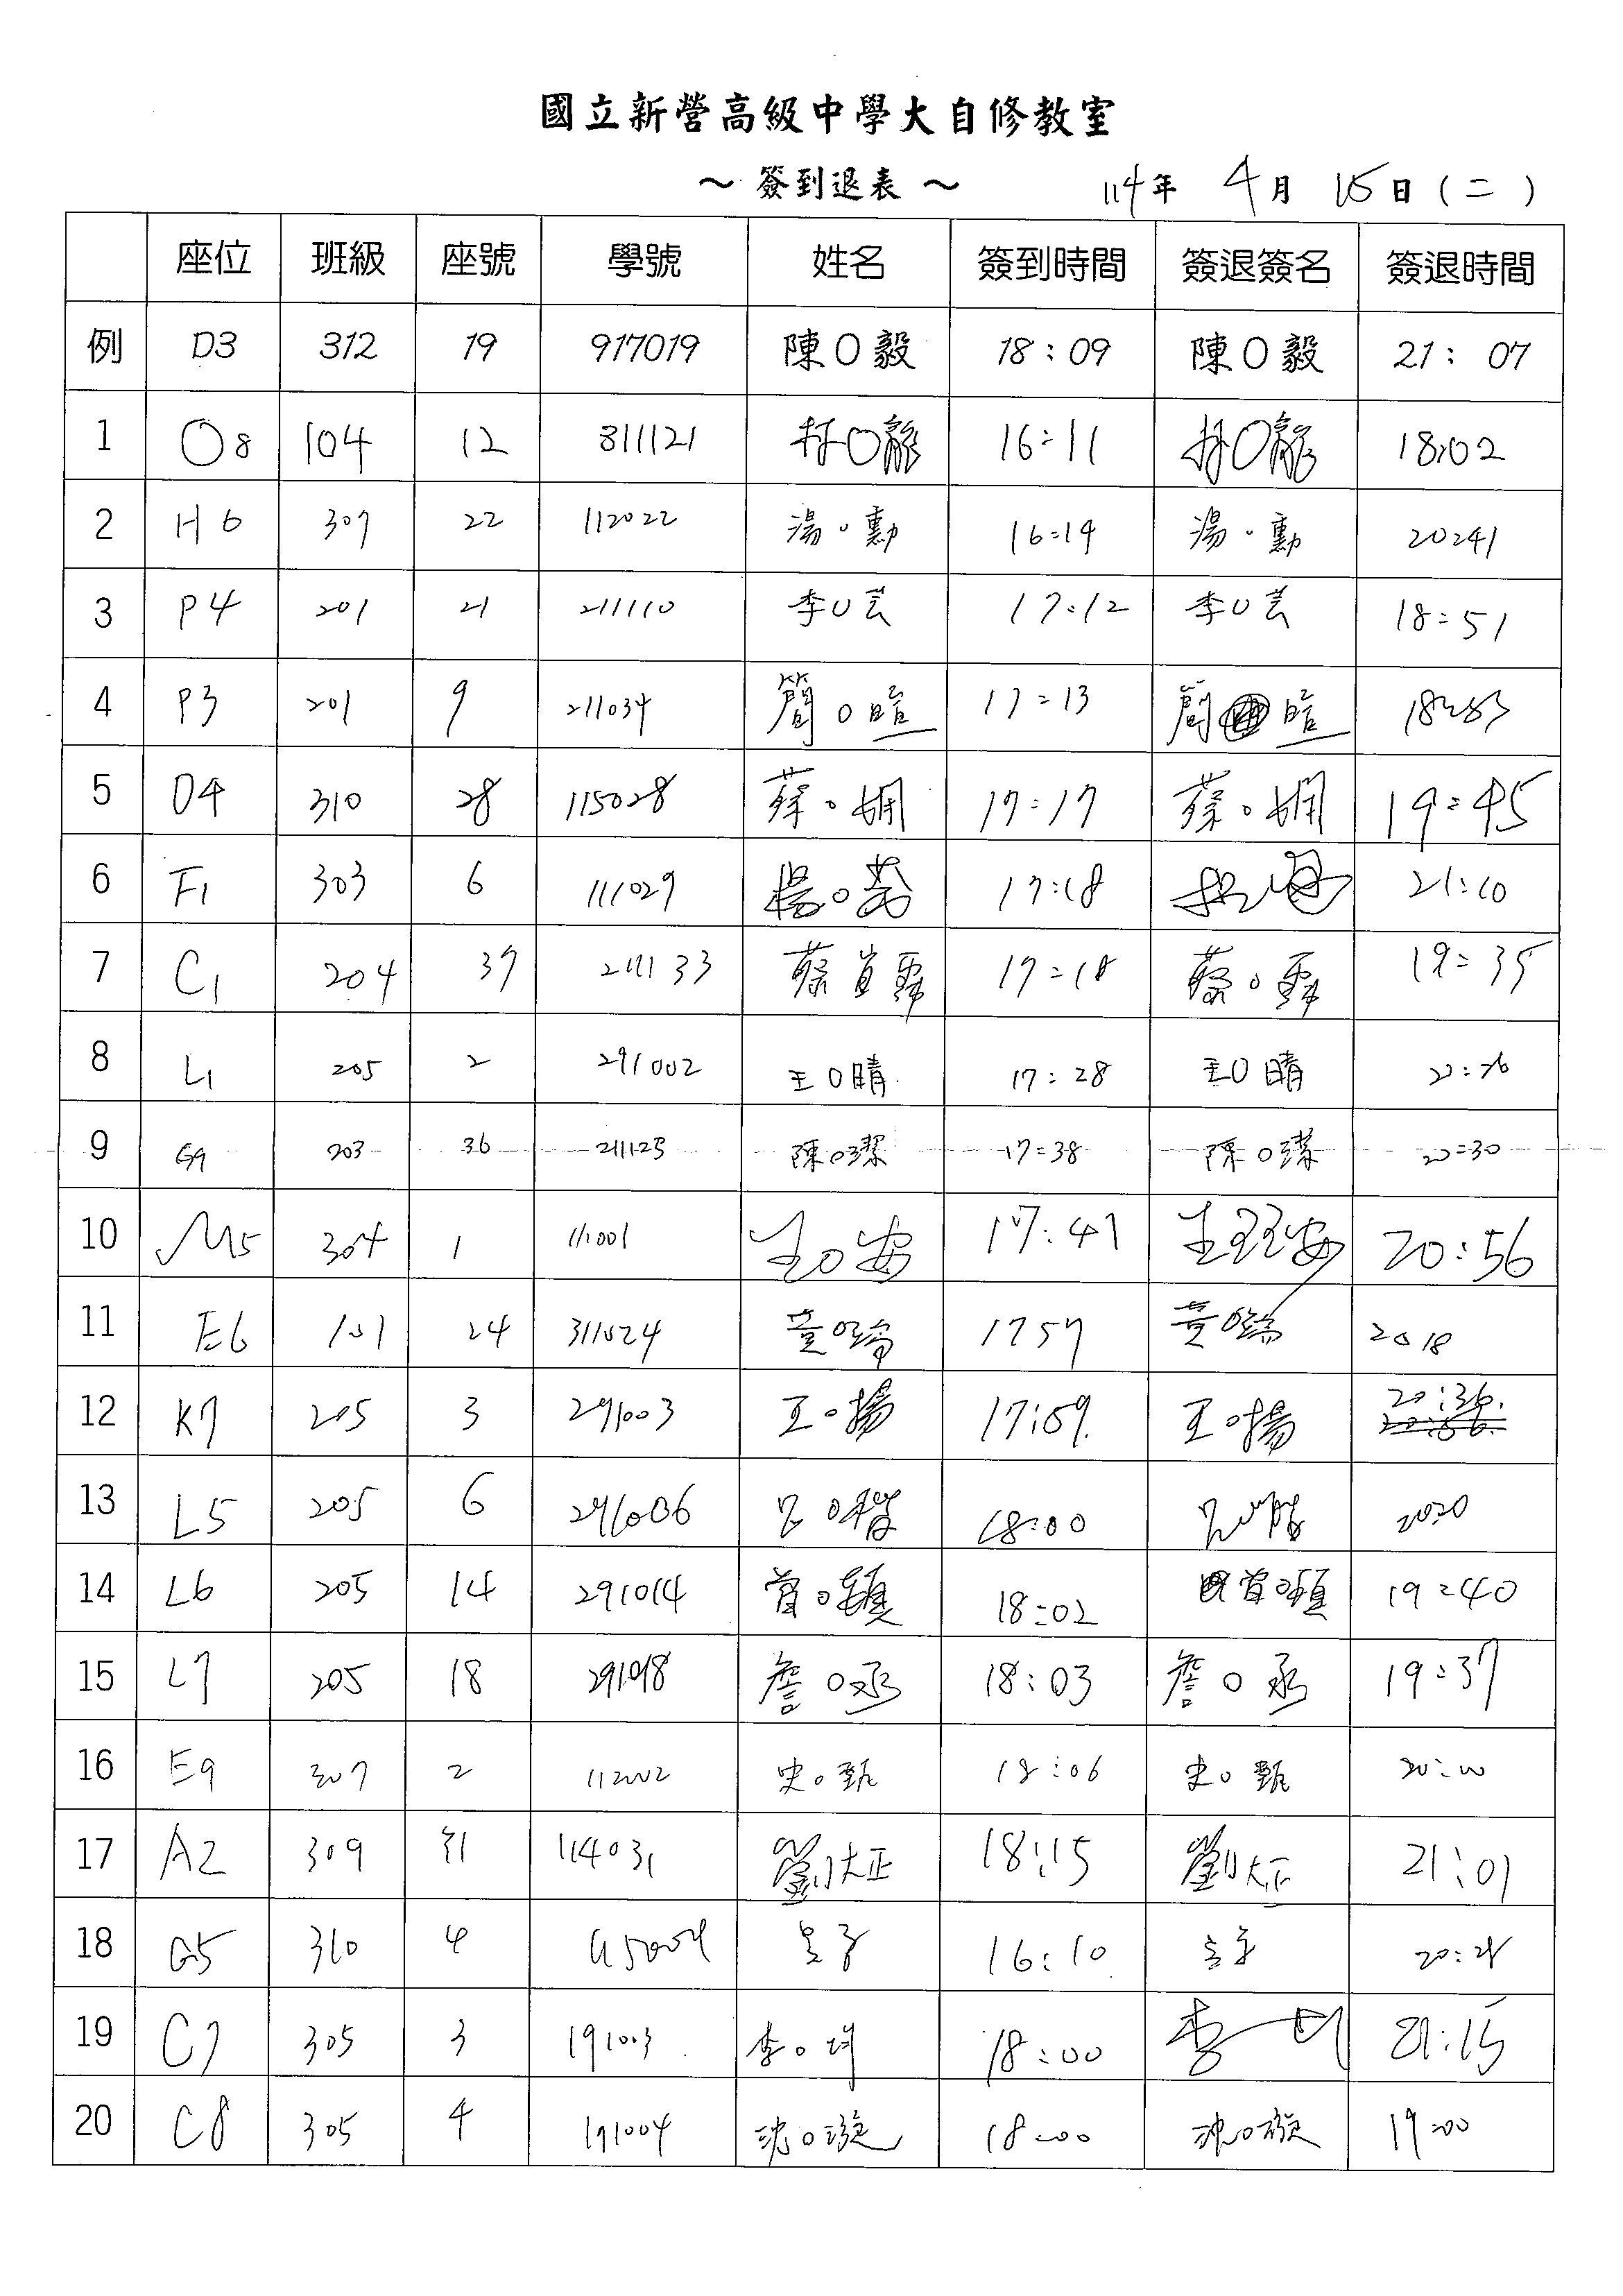 國立新營高級中學大自修教室
～ 簽到退表 ～ 114年 4月 15日(二)
座位 班級 座號 學號 姓名 簽到時間 簽退簽名 簽退時間
例 D3 312 19 917019 陳O毅 18:09 陳O毅 21:07
1 O8 104 12 311121 林O 16:11 林O 18:02
2 H6 307 22 112022 湯o勳 16:14 湯o勳 20:41
3 P4 201 21 211110 李O芸 17:12 李O芸 18:51
4 P3 201 9 211034 簡O暄 17:13 簡 暄 18:53
5 O4 310 28 115028 蔡o嫻 17:17 蔡o嫻 19:45
6 F1 303 6 111029 楊O 17:18 21:10
7 C1 204 37 211133 蔡 霈 17:18 蔡o霈 19:35
8 L1 205 2 291002 王O晴 17:28 王O晴
9 G9 203 36 211125 陳O潔 17:38 陳O潔 20:30
10 M5 304 1 111001 王O安 17:41 王 安 20:56
11 E6 101 24 311024 黃O 1757 黃O 2018
12 K7 205 3 291003 王o揚 17:59 王o揚 20:36
13 L5 205 6 291006 18:00 2020
14 L6 205 14 291014 曾O顗 18:02 曾O 19:40
15 L7 205 18 291018 詹O丞 18:03 詹O丞 19:37
16 E9 307 2 112002 史o甄 18:06 史o甄 20:00
17 A2 309 31 114031 劉大正 18:15 劉大正 21:01
18 G5 310 4 115004 16:10 20:21
19 C7 305 3 191003 李o 18:00 李 21:15
20 C8 305 4 191004 沈O璇 18:00 沈O璇 19:00